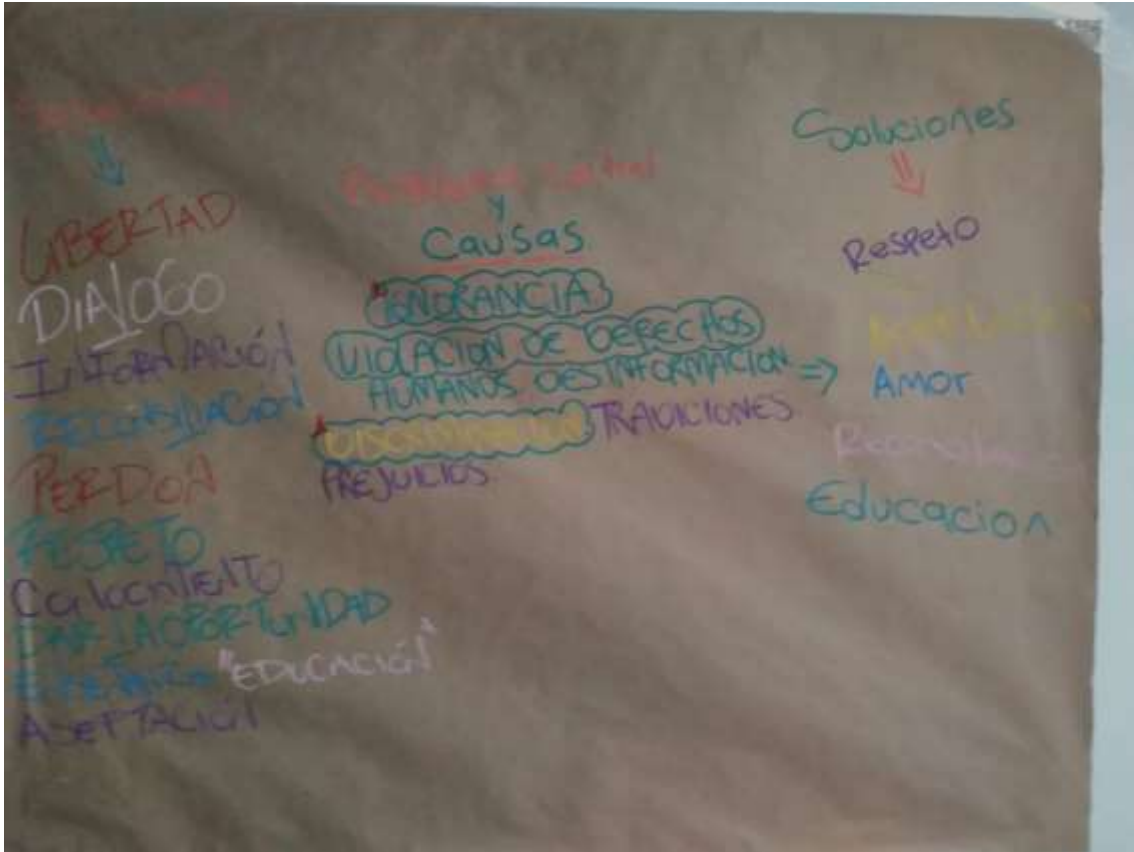 Soluciones
LIBERTAD
DIALOGO
INFORMACIÓN
RECONSILIACIÓN
PERDON
RESPETO
CONOCIMIENTO
DAR LA OPORTUNIDAD
"EDUCACIÓN"
ASEPTACIÓN
Problema central
y
Causas
IGNORANCIA
VIOLACION DE DERECHOS
HUMANOS DESINFORMACION =>
DISCRIMINACION TRADICIONES
PREJUICIOS
Soluciones
Respeto
Amor
Educacion